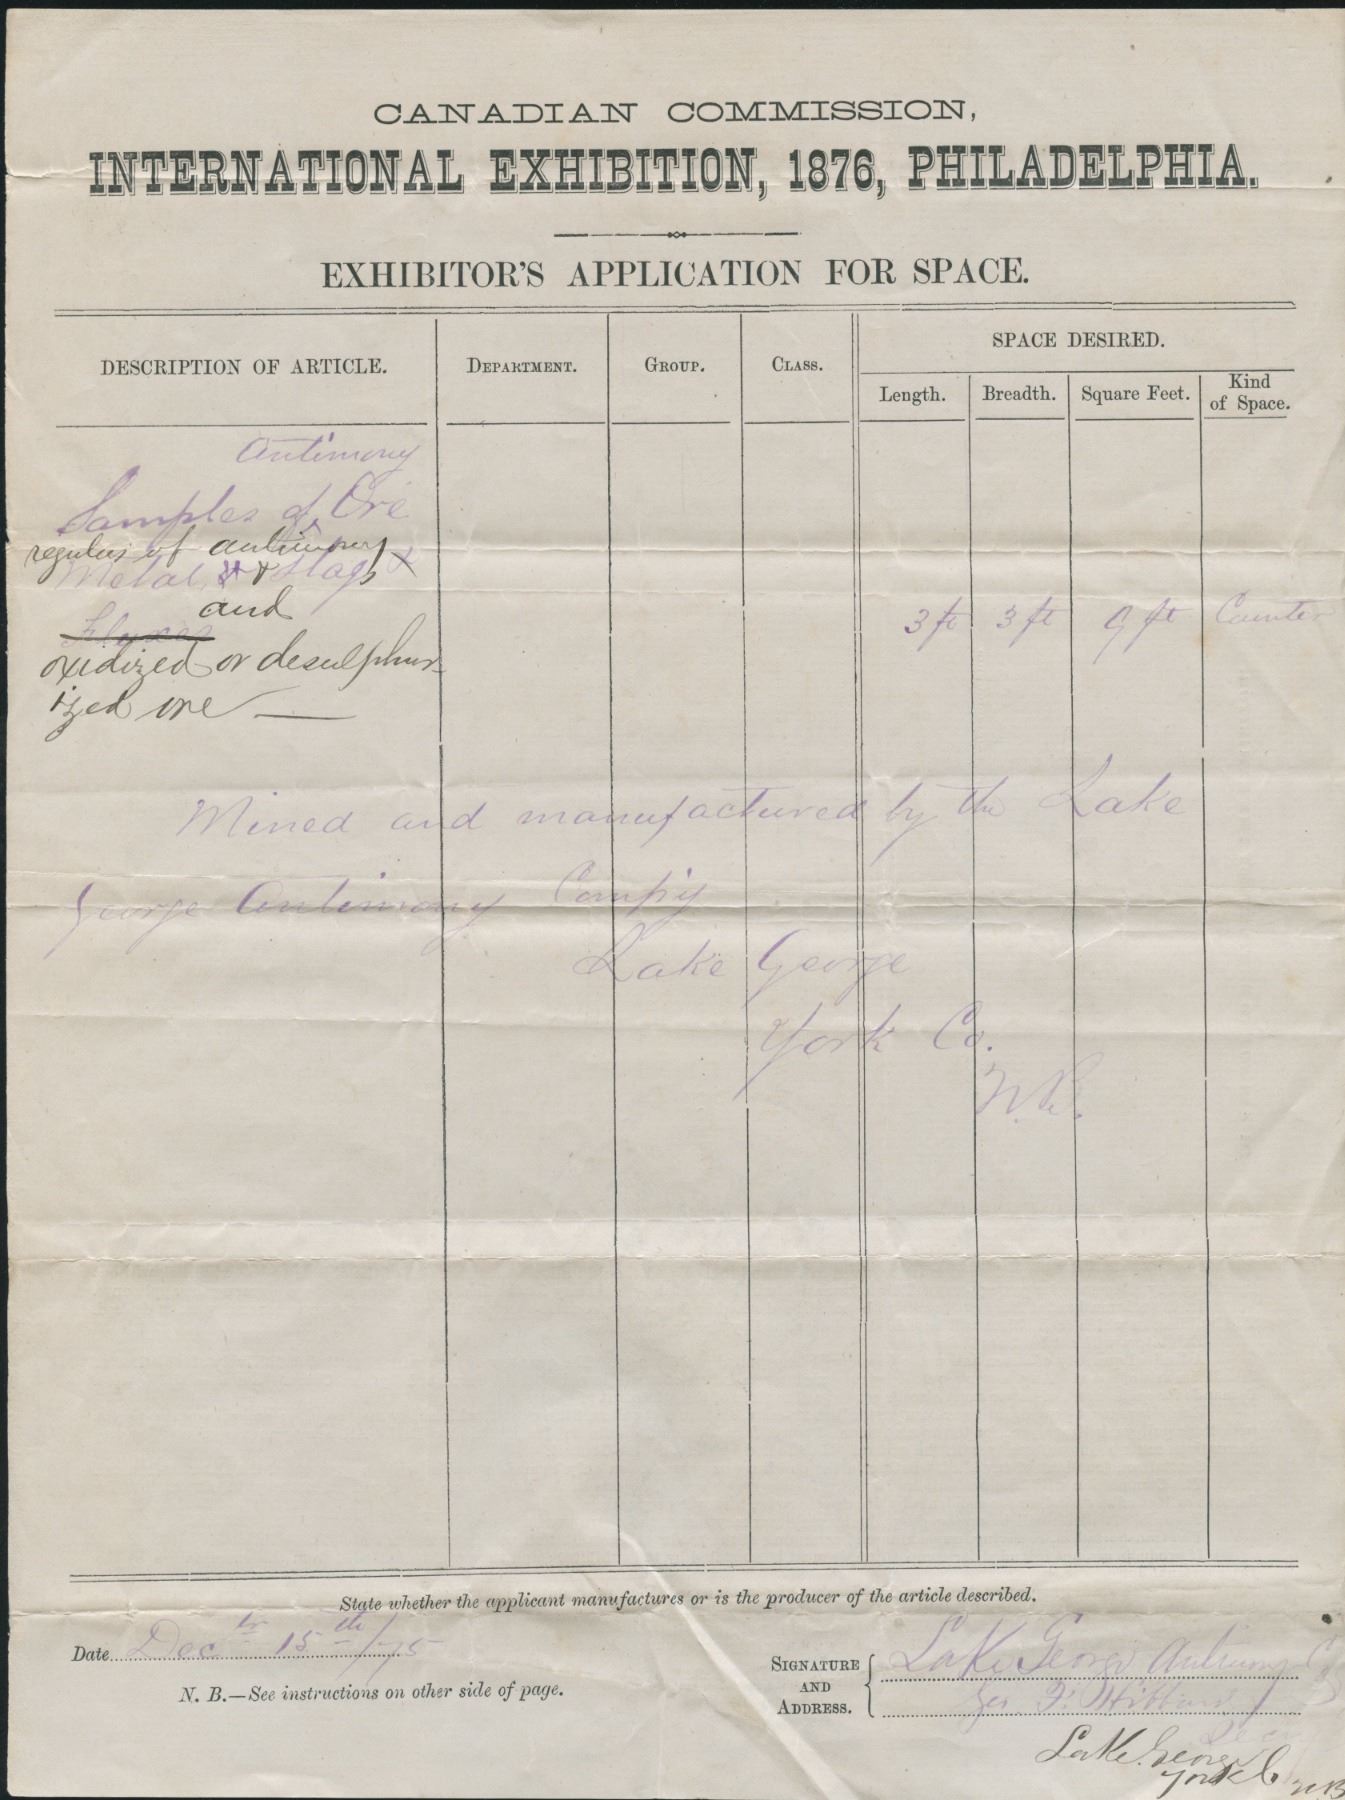 CANADIAN COMMISSION,
INTERNATIONAL EXHIBITION, 1876, PHILADELPHIA.
EXHIBITOR'S APPLICATION FOR SPACE.
DESCRIPTION OF ARTICLE.
DEPARTMENT.
GROUP.
CLASS.
SPACE DESIRED.
Length.
Breadth.
Square Feet.
Kind
of Space.
Antimony
Samples of Ore
regulus of antimony
Metal & Slags
and
oxidized or desulphur-
ized ore
3 ft 3 ft 9 ft Counter
Mined and manufactured by the Lake
George Antimony Comp'y
Lake George
York Co.
N.B.
State whether the applicant manufactures or is the producer of the article described.
Date Dec br 15 th /75
N. B.—See instructions on other side of page.
SIGNATURE
AND
ADDRESS.
Lake George Antimony
F. Hibbard
Secy
Lake George
York Co N.B